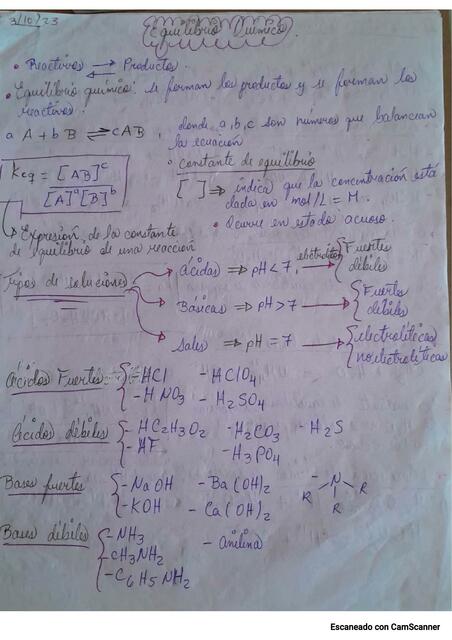 3/10/23
Equilibrio Químico
• Reactivos ⇄ Productos.
• Equilibrio químico: se forman los productos y se forman los
reactivos.
a A + b B ⇌ cAB , donde a, b, c son números que balancean
la ecuación
• constante de equilibrio
Keq = [AB]^c
[A]^a[B]^b
[ ] ⇒ indica que la concentración está
dada en mol/L = M.
• Ocurre en estado acuoso.
↳ Expresión de la constante
de equilibrio de una reacción
Tipos de soluciones
ácidas ⇒ pH < 7, electrolitos { Fuertes
débiles
Básicas ⇒ pH > 7 → { Fuertes
débiles
Sales ⇒ pH = 7 → { electrolíticas
no electrolíticas
Ácidos Fuertes { - HCl - HClO4
- HNO3 - H2SO4
Ácidos débiles { - HC2H3O2 - H2CO3 - H2S
- HF - H3PO4
Bases fuertes { - NaOH - Ba(OH)2 - N
R R R
- KOH - Ca(OH)2
Bases débiles { - NH3 - anilina
- CH3NH2
- C6H5NH2
Escaneado con CamScanner